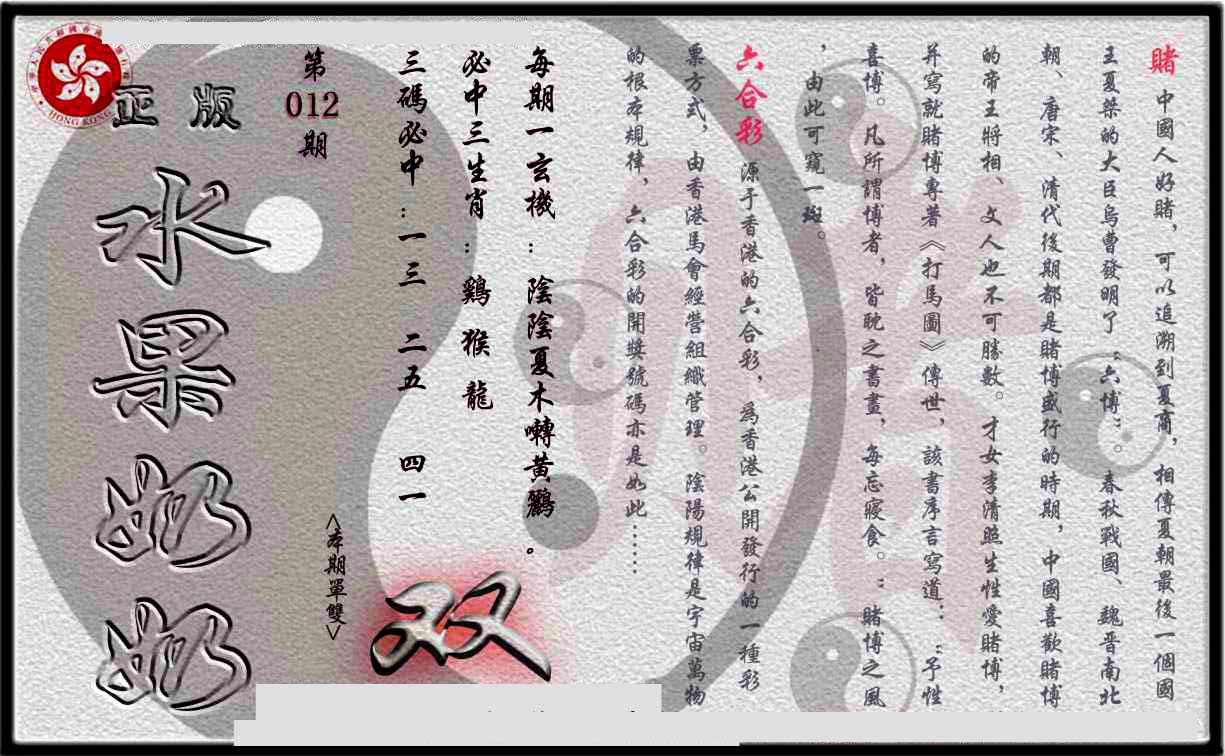 賭 中國人好賭，可以追溯到夏商，相傳夏朝最後一個國
王夏桀的大臣烏曹發明了“六博”。春秋戰國、魏晋南北
朝、唐宋、清代後期都是賭博盛行的時期，中國喜歡賭博
的帝王將相、文人也不可勝數。才女李清照生性愛賭博，
并寫就賭博專著《打馬圖》傳世，該書序言寫道：“予性
喜博。凡所謂博者，皆耽之書畫，每忘寢食。”賭博之風
，由此可窺一斑。
六合彩 源于香港的六合彩，為香港公開發行的一種彩
票方式，由香港馬會經營組織管理。陰陽規律是宇宙萬物
的根本規律，六合彩的開獎號碼亦是如此……
每期一玄機：陰陰夏木囀黃鸝。
必中三生肖：鷄 猴 龍
三碼必中：一三 二五 四一
双
<本期單雙>
第
012
期
正版
水果奶奶
HONG KONG